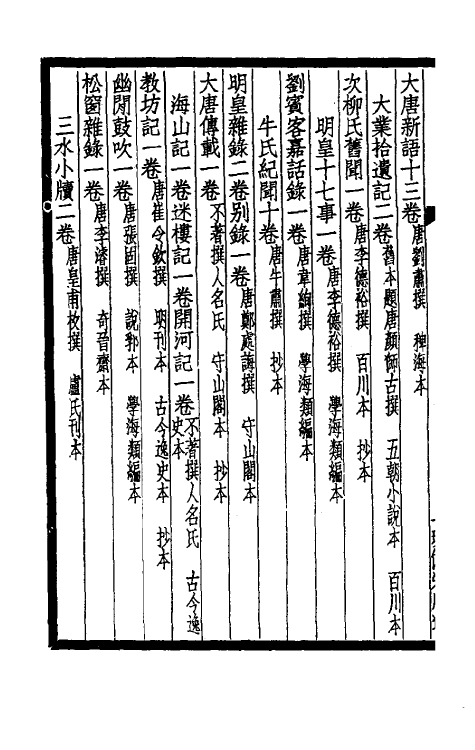 大唐新語十三卷唐劉肅撰 稗海本
大業拾遺記二卷舊本題唐顏師古撰 五朝小說本 百川本
次柳氏舊聞一卷唐李德裕撰 百川本 抄本
明皇十七事一卷唐李德裕撰 學海類編本
劉賓客嘉話錄一卷唐韋絢撰 學海類編本
牛氏紀聞十卷唐牛肅撰 抄本
明皇雜錄二卷别錄一卷唐鄭處誨撰 守山閣本
大唐傳載一卷不著撰人名氏 守山閣本 抄本
海山記一卷迷樓記一卷開河記一卷不著撰人名氏 古今逸史本
教坊記一卷唐崔令欽撰 明刊本 古今逸史本 抄本
幽閒鼓吹一卷唐張固撰 說郛本 學海類編本
松窗雜錄一卷唐李濬撰 奇晉齋本
三水小牘二卷唐皇甫枚撰 盧氏刊本